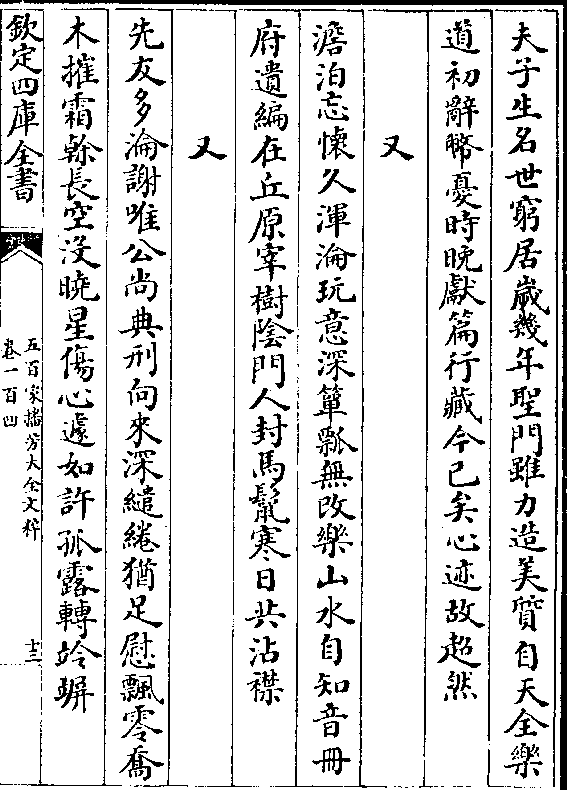 夫子生名世窮居歲幾年聖門雖力造美質自天全樂
道初辭幣憂時晚獻篇行藏今已矣心迹故超然
又
澹泊忘懷久渾淪玩意深簞瓢無改樂山水自知音冊
府遺編在丘原宰樹陰門人封馬鬛寒日共沾襟
又
先友多淪謝唯公尚典刑向來深繾綣猶足慰飄零喬
木摧霜榦長空没曉星傷心遽如許孤露轉竛竮
欽定四庫全書
五百家播芳大全文粹
卷一百四
十三